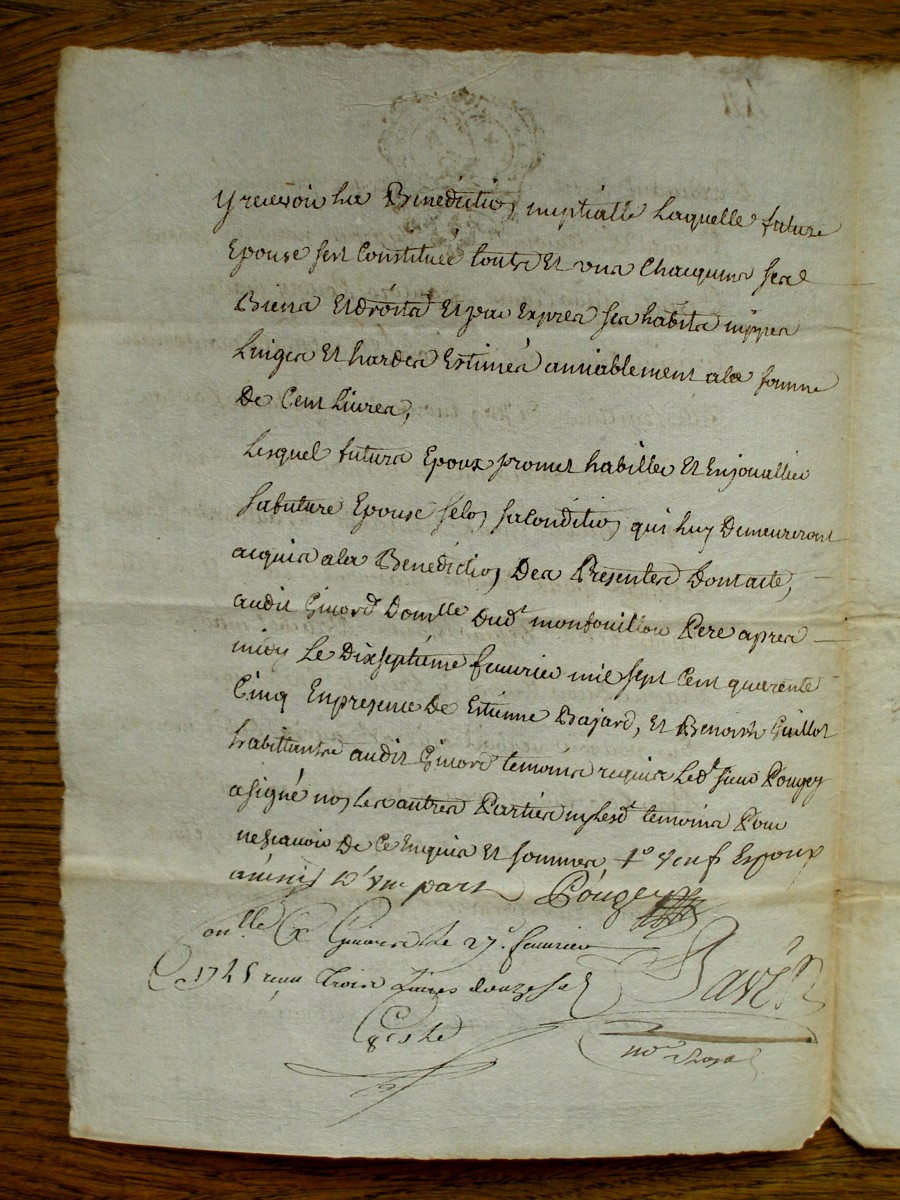 y recevoir la Benediction nuptialle Laquelle future
Epouse sest Constituée touts Et uns Chacquuns ses
Biens Et droits Et par Expres ses habits nippes
Linges Et hardes Estimés amiablement ala somme
De Cent Livres,
Lesquel futurs Epoux promet habiller Et Enjoualler
sa future Epouse selon sa Condition qui luy Demeureront
acquis ala Benediction Des Presentes Dont acte,
audit Givord Domlle Dud.t montouillon Pere apres
midy Le Dixseptiéme feuvrier mil sept Cent quarente
Cinq En presence De Estienne Bajard, et Benoist Guillot
habittants audit Givord temoins requis Led.t sieur Pougey
a signé non les autres Parties ny Lesd.t temoins Pour
ne scavoir De Ce Enquis Et sommes Epoux
D'une part Pougey
onlle a Givors Le 27.e feuvrier
1745 reçu Trois Livres douze sols
Bavet
no.re Royal